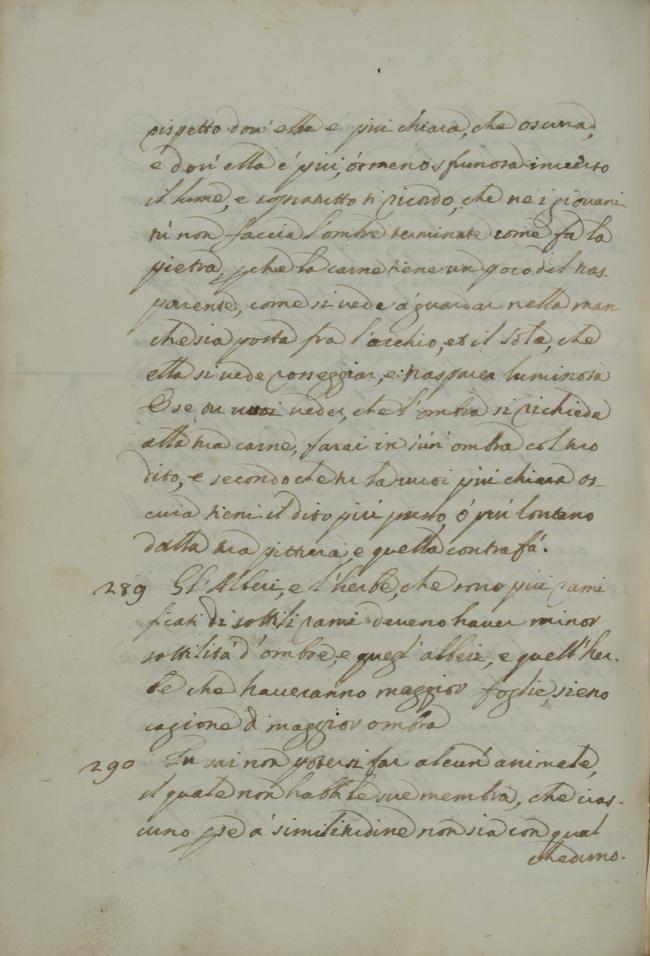 rispetto dov' ella é piú chiara, che oscura,
é dov' ella é piú, ó meno sfumosa inverso
il lume, e sopratutto ti ricordo, che ne i giovani
tú non faccia l'ombre terminate come fá la
pietra, pche la carne tiene un poco del tras-
parente, come si vede á guardar nella man
che sia posta fra l'occhio, et il Sole, che
ella si vede rosseggiar, e trasparer luminosa
E se tu vuoi veder, che l'ombra si richiede
alla tua carne, farai in sú un' ombra col tuo
dito, e secondo che tu la vuoi piú chiara os-
cura tieni il dito piú presso, ó piú lontano
dalla tua pittura, e quella contrafá.
289 Gl' Alberi, e l'herbe, che sono piú rami
ficati di sottili rami deveno haver minor
sottilitá d' ombre, e quegl' alberi, e quell' her-
be che haveranno maggior foglie, sieno
cagione di maggior ombra
290 Tu sai non potersi far alcun' animale,
il quale non habb. le sue membra, che cias-
cuno p se á similitudine non sia con qual
cheduno.